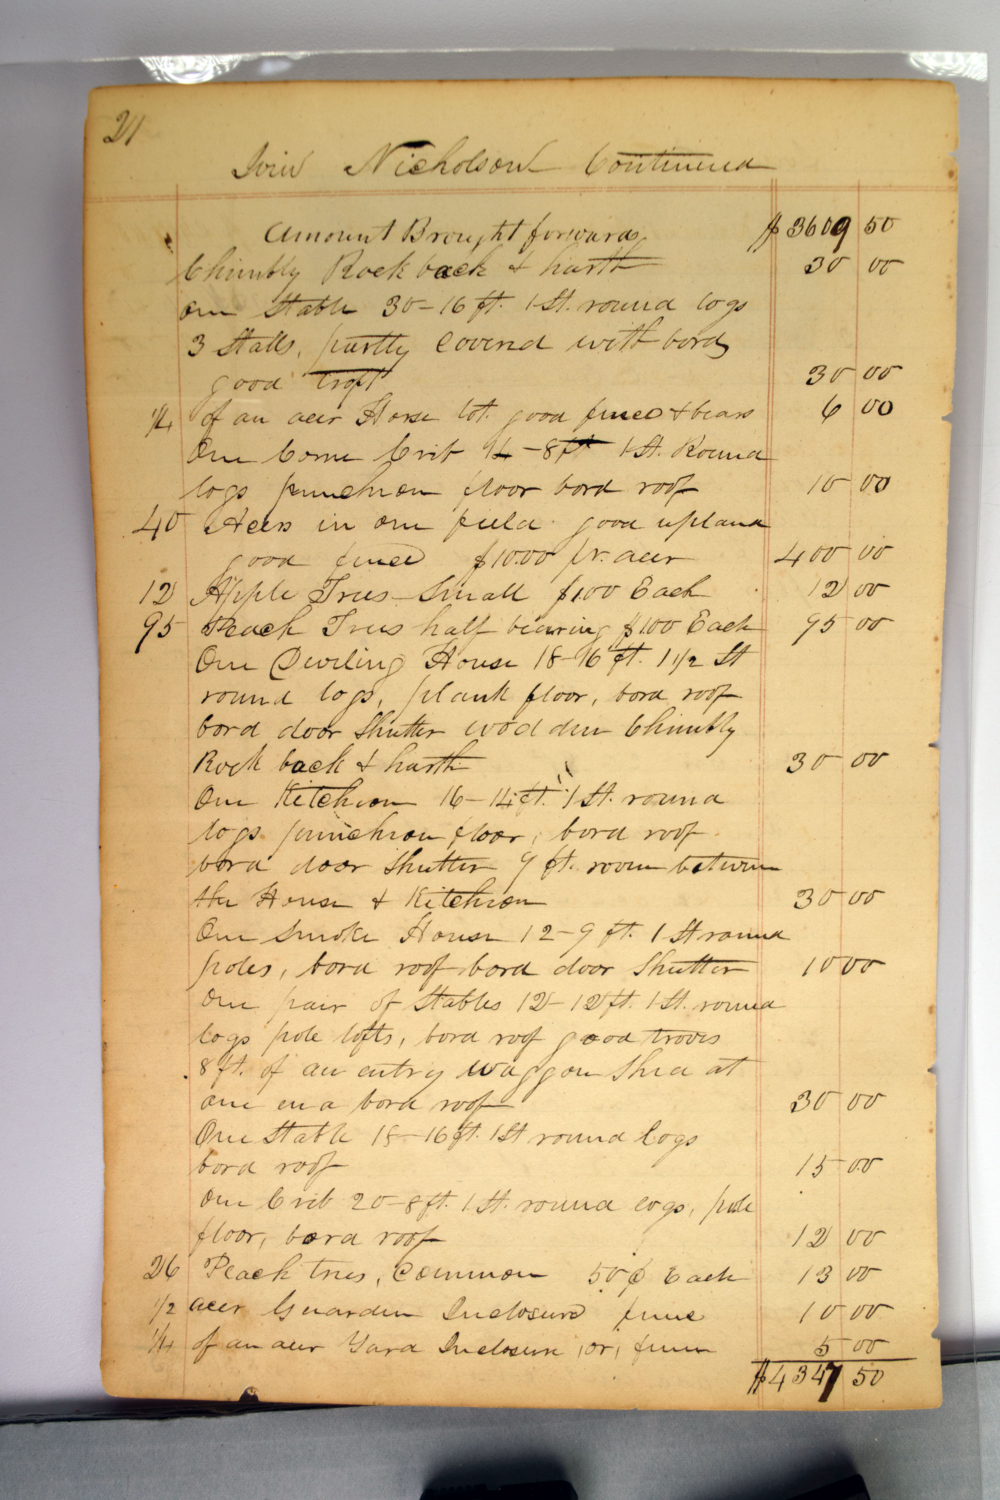 21
Nicholson Continued
Amount Brought forward $3609 50
Chimbly Rock back & harth 30 00
One Stable 30-16 ft. 1 St. round logs
3 Stalls, partly coverid with bords
good troft 30 00
1/4 of an acer Horse lot good fince & bears 6 00
One Corne Crib 14-8 ft 1 St. Round
logs punchion floor bord roof 10 00
40 Acers in one field good upland
good fince $10.00 pr. acer 400 00
12 Apple Trees Small $1,00 Each 12 00
95 Peach Trees half bearing $1 00 Each 95 00
One Dweling House 18-16 ft. 1 1/2 St
round logs, plank floor, bord roof
bord door Shutter wodden Chimbly
Rock back & harth 30 00
One Kitchion 16-14 ft. 1 St. round
logs punchion floor, bord roof
bord door Shutter 9 ft. room between
the House & Kitchion 30 00
One Smoke House 12-9 ft. 1 St round
poles, bord roof bord door Shutter 10 00
One pair of Stables 12-12 ft. 1 St. round
logs pole lofts, bord roof good troves
8 ft. of an entry waggon Shed at
one end bord roof 30 00
One Stable 18-16 ft. 1 St round logs
bord roof 15 00
One Crib 20-8 ft. 1 St. round logs, pole
floor, bord roof 12 00
26 Peach tres, Common 50 ¢ Each 13 00
1/2 acer Guarden Inclosure fince 10 00
1/4 of an acer Yard Inclosure, or, fince 5 00
$4347 50